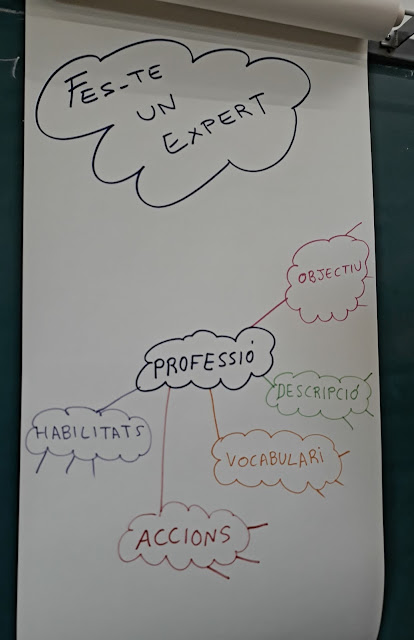 FES-TE
UN
EXPERT
OBJECTIU
PROFESSIÓ
DESCRIPCIÓ
HABILITATS
VOCABULARi
ACCIONS